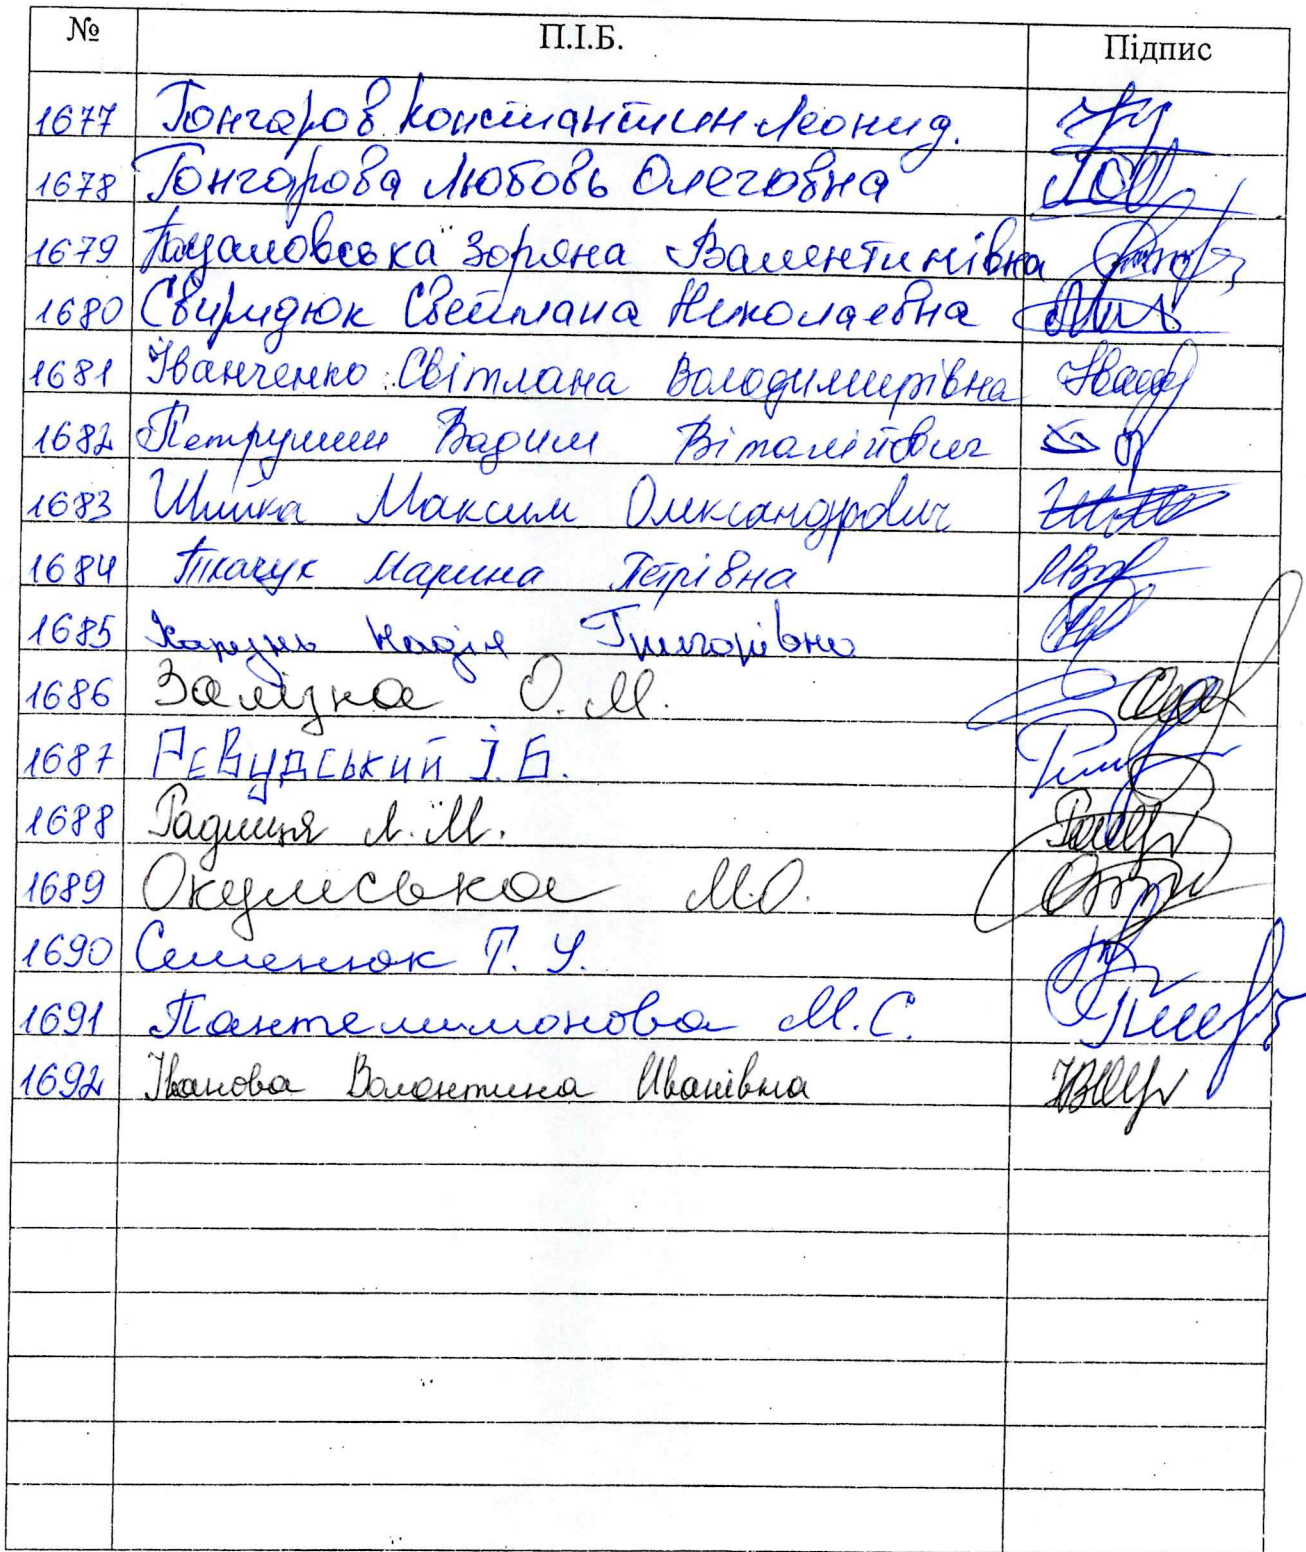 № П.І.Б. Підпис
1677 Гончаров Константин Леонид.
1678 Гончарова Любовь Олеговна
1679 Зоряна Валентинівна
1680 Свиридюк Светлана Николаевна
1681 Іванченко Світлана Володимирівна
1682 Петрушин Вадим Віталійович
1683 Шийка Максим Олександрович
1684 Ткачук Марина Петрівна
1685 Надія Григорівна
1686 Залізна О. М.
1687 Рєвудський І. Б.
1688 Радниця Л. М.
1689 Окулиська М.О.
1690 Семенюк Т. У.
1691 Пантелимонова М. С.
1692 Іванова Валентина Иванівна